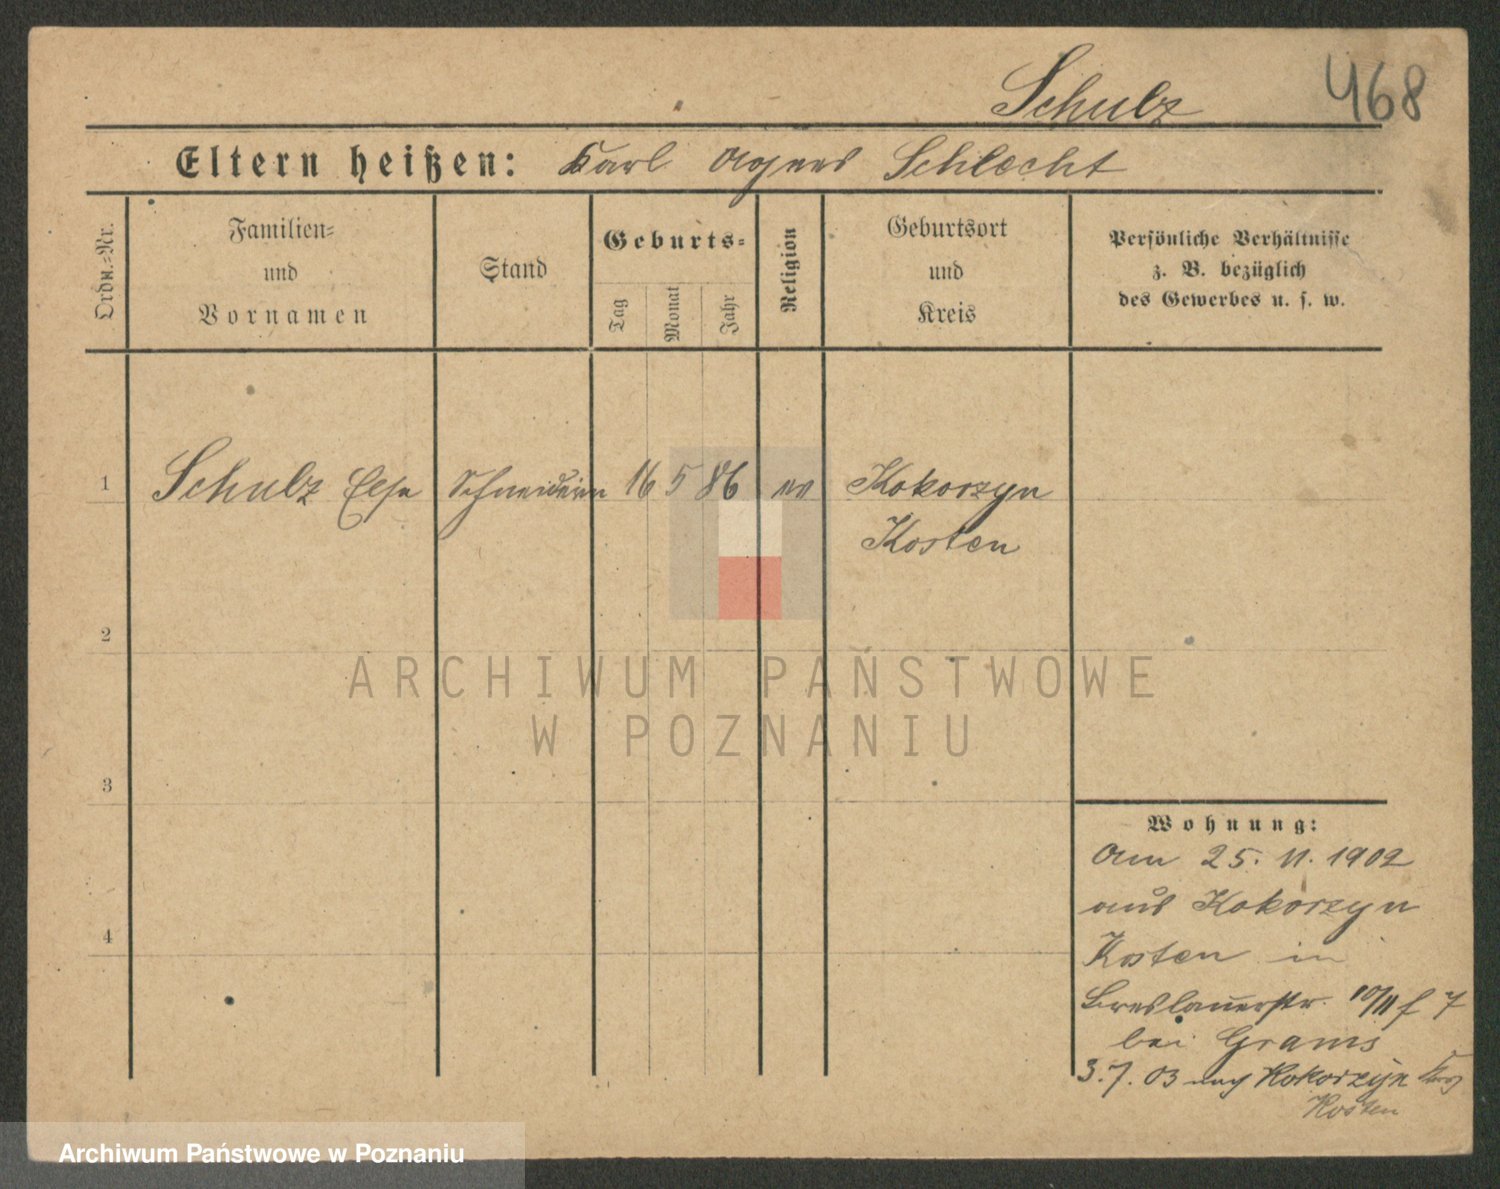 Schulz 468
Eltern heißen: Karl Agnes Schlecht
Ordn.=Nr.
Familien=
und
Vornamen
Stand
Geburts=
Tag
Monat
Jahr
Religion
Geburtsort
und
Kreis
Persönliche Verhältnisse
z. B. bezüglich
des Gewerbes u. s. w.
1 Schulz Elsa Schneiderin 16 5 86 ev Kokorzyn
Kosten
2
ARCHIWUM PAŃSTWOWE
W POZNANIU
3
4
Wohnung:
Am 25. 11. 1902
aus Kokorzyn
Kosten in
Breslauerstr. 10/11 f 7
bei Grams
3. 7. 03 nach Kokorzyn
Kosten
Archiwum Państwowe w Poznaniu